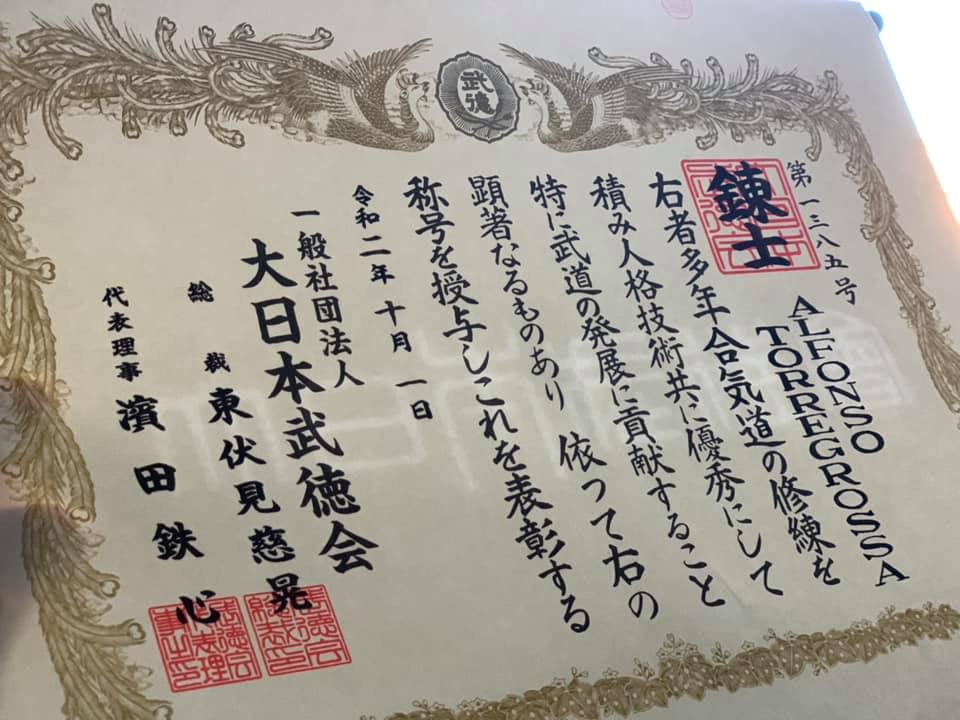 武徳
第一三八五号
錬士
ALFONSO
TORREGROSSA
右者多年合気道の修練を
積み人格技術共に優秀にして
特に武道の発展に貢献すること
顕著なるものあり 依つて右の
称号を授与しこれを表彰する
令和二年十月一日
一般社団法人
大日本武徳会
総裁 東伏見慈晃
代表理事 濱田鉄心